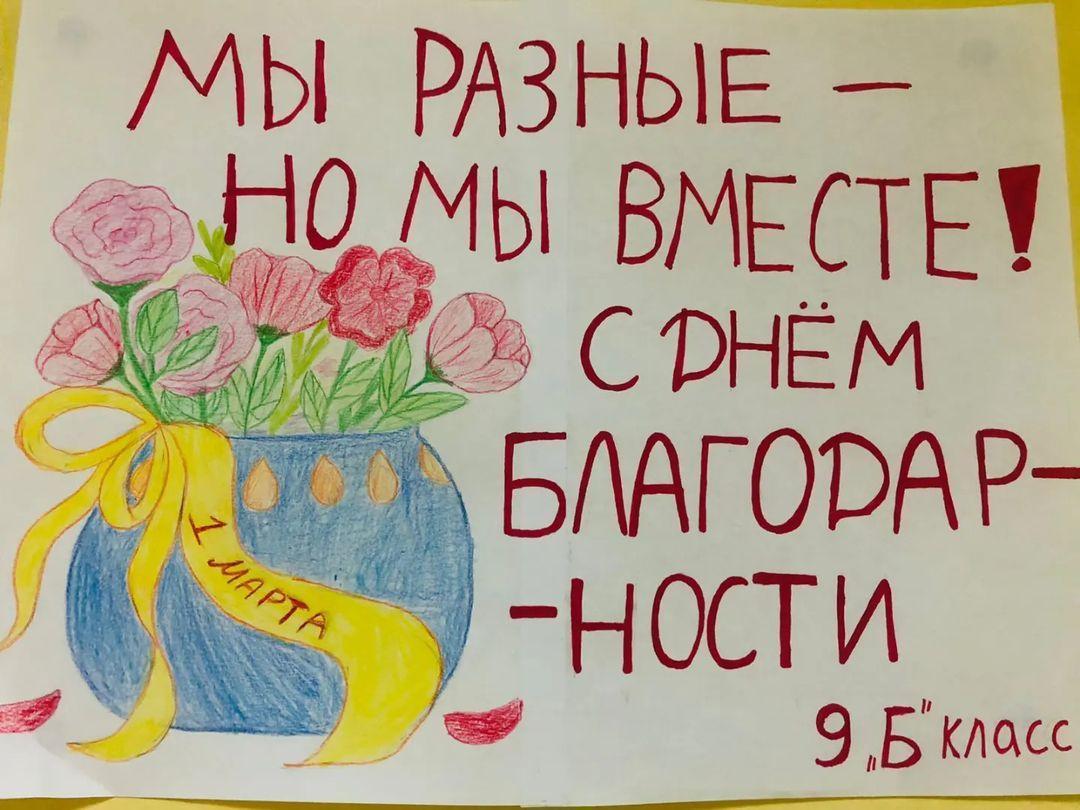 МЫ РАЗНЫЕ —
НО МЫ ВМЕСТЕ!
С ДНЁМ
БЛАГОДАР-
-НОСТИ
1 МАРТА
9 „Б" класс